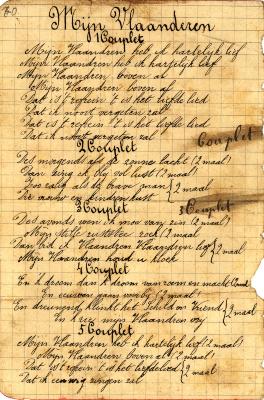 70
Mijn Vlaanderen
1 Couplet
Mijn Vlaandren heb ik hartelijk lief
Mijn Vlaandren heb ik hartelijk lief
Mijn Vlaandren boven al
Mijn Vlaandren boven al
Dat is 't refrein t is het liefde lied
Dat ik nooit vergeten zal
Dat is 't refrein t is het liefde lied
Dat ik nooit vergeten zal
Couplet
2 Couplet
Des morgends als de zonne lacht (2 maal)
Dan zing ik bly vol lust (2 maal)
Zoo zalig als de brave man } 2 maal
Die vrouw en kinderen kust
3 Couplet
3 Couplet
Des avonds ben ik moe van zin (2 maal)
Mijn stille ruststeê zoek (2 maal)
Dan bid ik Vlaendren Vlaandren lief } 2 maal
Mijn Vlaandren houd u kloek
4 Couplet
En k droom dan k droom van roem en macht
En eeuwen gaan voorby (2 maal)
En dreunend klinkt het Schild en Vriend } 2 maal
En k zie mijn Vlaandren vry
5 Couplet
Mijn Vlaandren heb ik hartelijk lief (2 maal)
Mijn Vlaandren boven al (2 maal)
Dat is t refrein t is het liefdelied } 2 maal
Dat ik eeuwig zingen zal